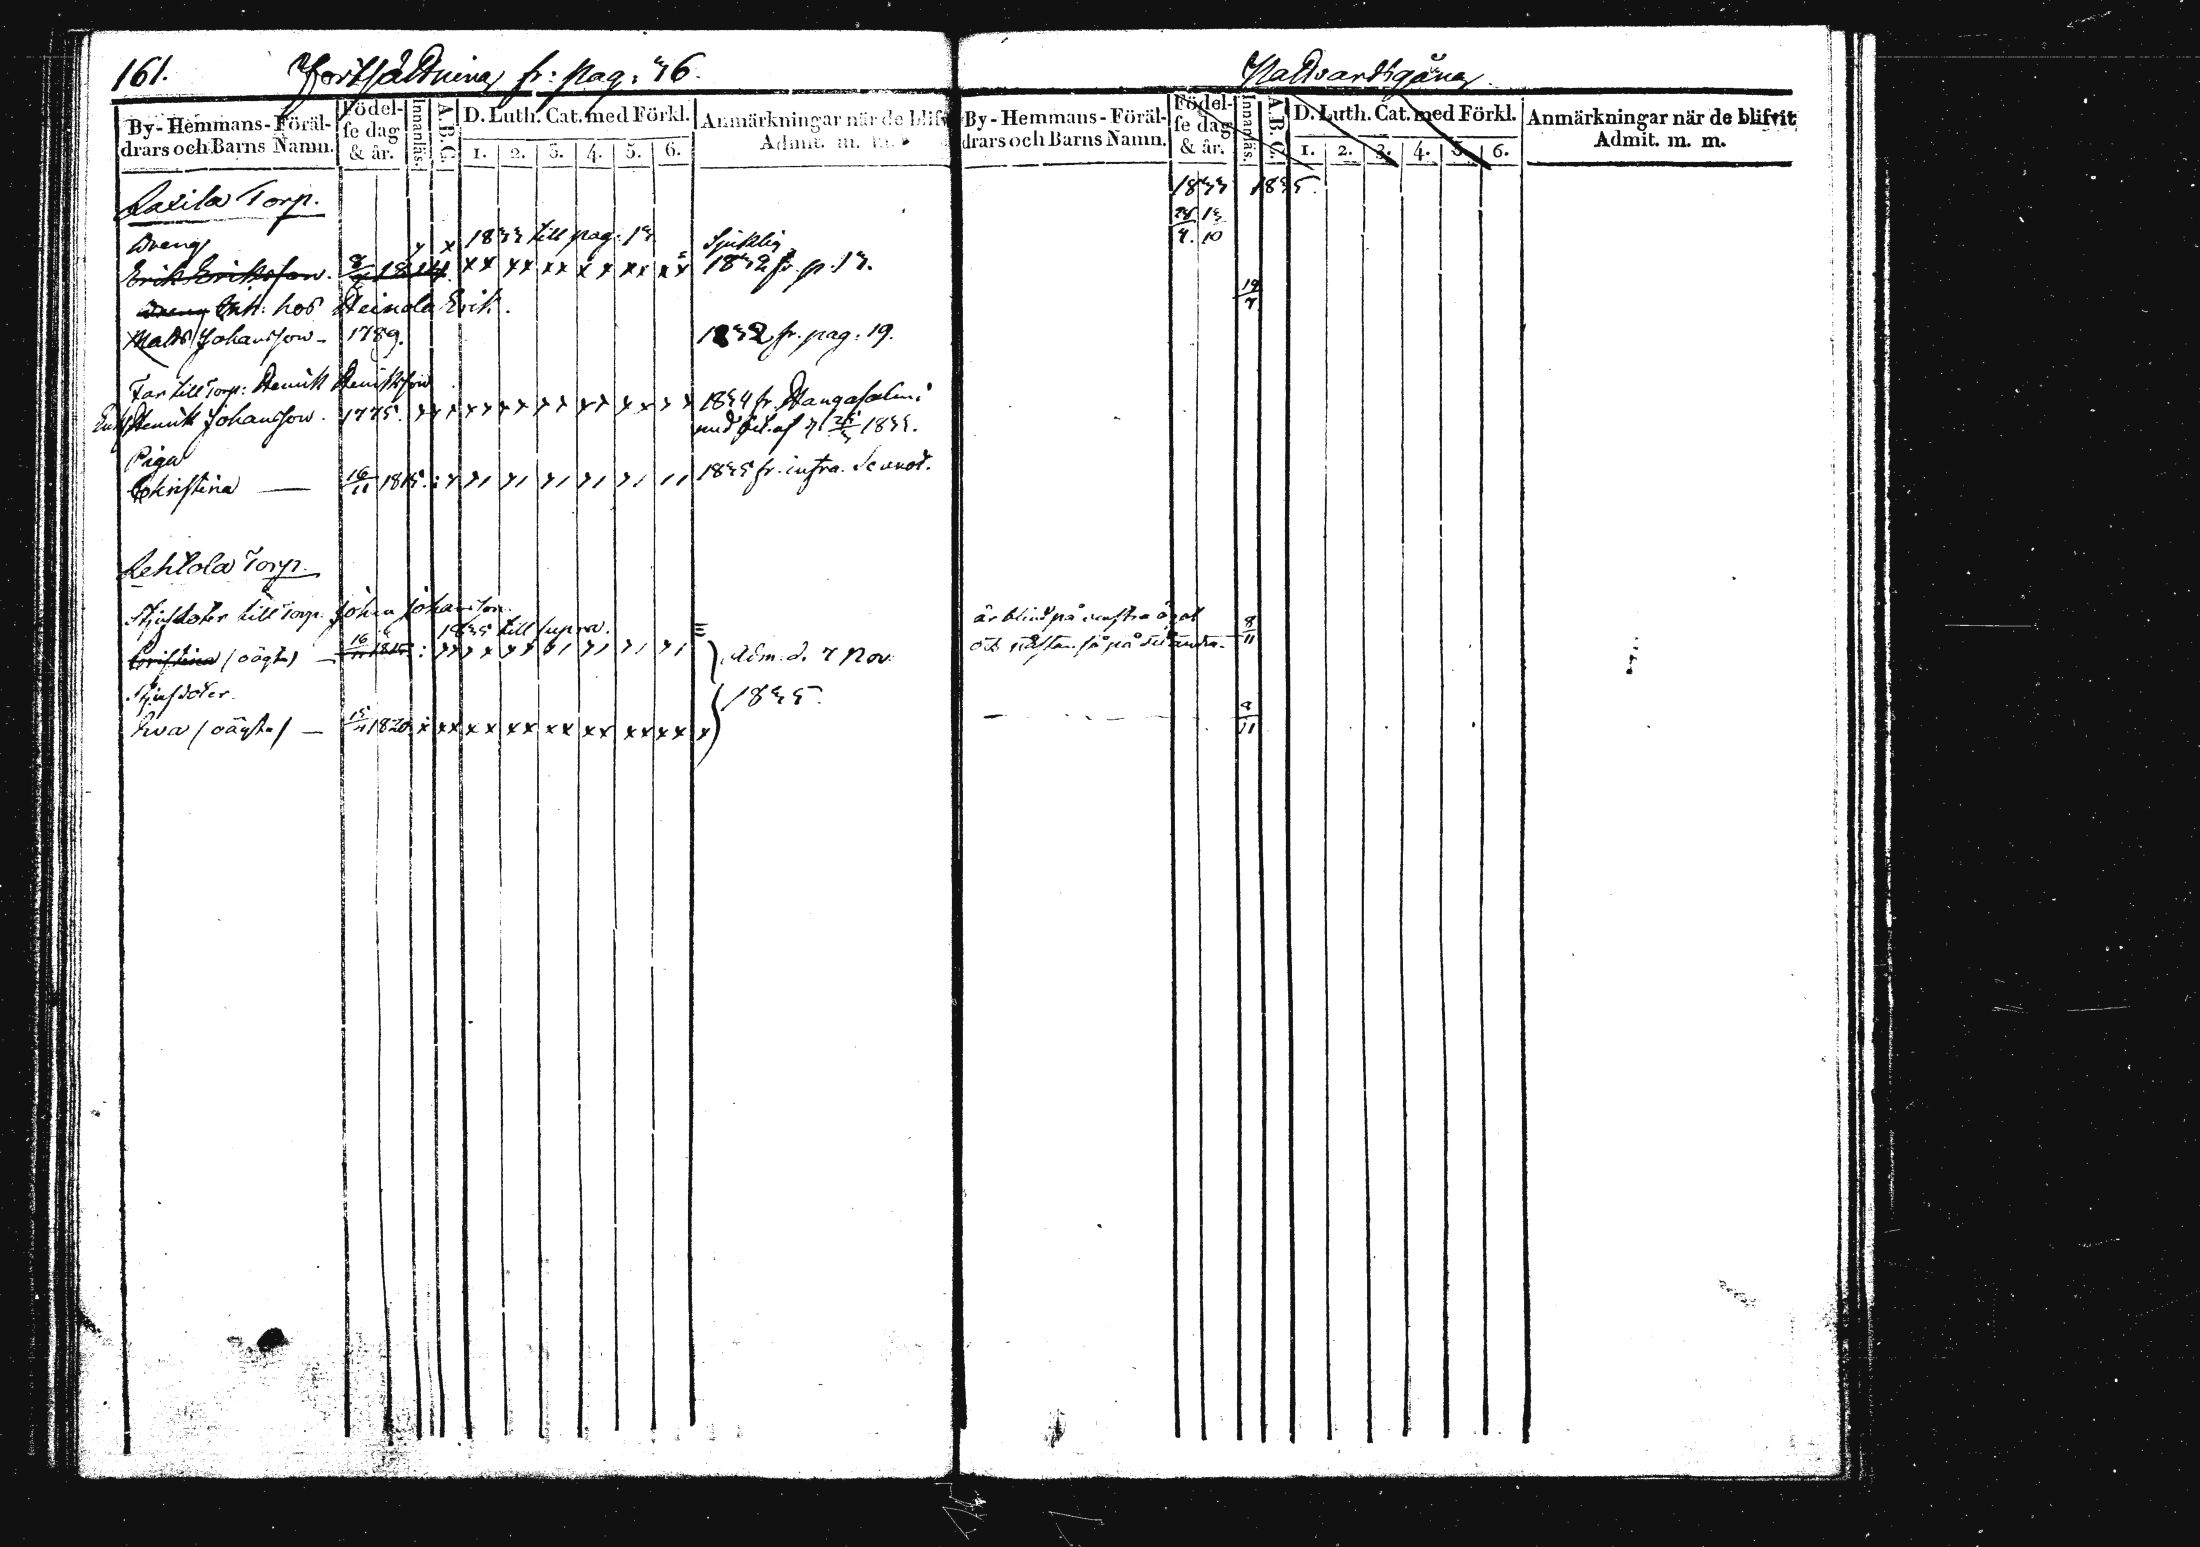 161. Fortsättning fr: pag: 36.
By-Hemmans-Föräl-
drars och Barns Namn.
Födel-
se dag
& år.
Innanläs.
A.B.C.
D. Luth. Cat. med Förkl.
1. 2. 3. 4. 5. 6.
Anmärkningar när de blifv
Admit. m. m.
Laxila Torp.
Dreng 1833 till pag. 13 Sjuklig
Erik Eriksson. 8 1814 xx xx xx xx xx xx 1832 fr. p. 13.
Dreng Inh: hos Heinola Erik.
Matts Johansson - 1789. 1832 fr. pag. 19.
Far till Torp: Henrik Henriksson
Enkl. Henrik Johansson. 1775. 1834 fr. Kangasalmi
med bet. af d. 1833.
Piga
Christina — 16/11 1815. 1835 fr. infra.
Lehtola Torp.
Stjufdoter till Torp. Johan Johansson.
1835 till supra.
Christina (oägta) – 16/11 1815 Adm. d. 7 Nov.
Stjufdoter. 1835.
Eva (oägta) – 15/4 1820 x xx xx xx xx xx xx xx x
Nattvardsgång
By-Hemmans-Föräl-
drars och Barns Namn.
Födel-
se dag
& år.
Innanläs.
A.B.C.
D. Luth. Cat. med Förkl.
1. 2. 3. 4. 5. 6.
Anmärkningar när de blifvit
Admit. m. m.
1833 1835.
28 13
4. 10
19
7
är blind på venstra ögat 8
och nästan så på det andra. 11
8
11